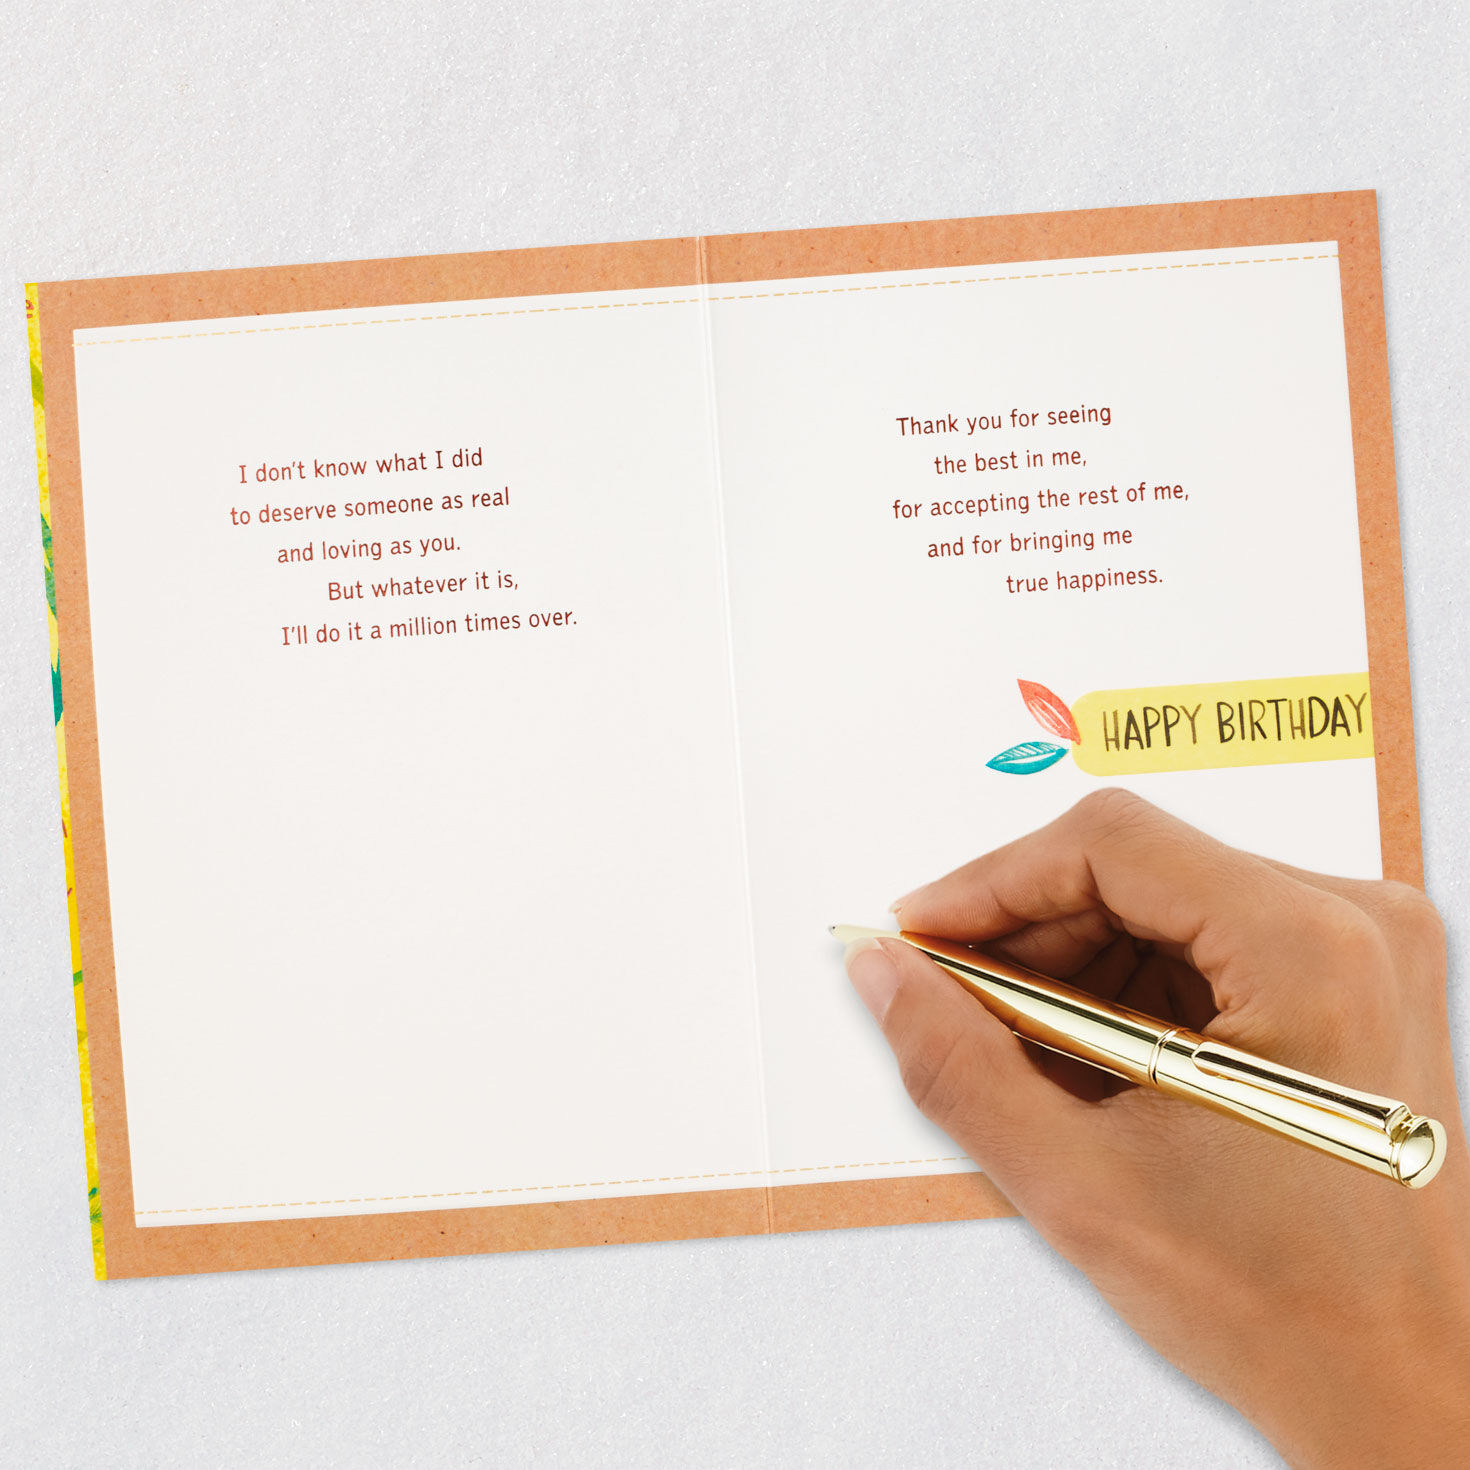 I don't know what I did
to deserve someone as real
and loving as you.
But whatever it is,
I'll do it a million times over.
Thank you for seeing
the best in me,
for accepting the rest of me,
and for bringing me
true happiness.
HAPPY BIRTHDAY